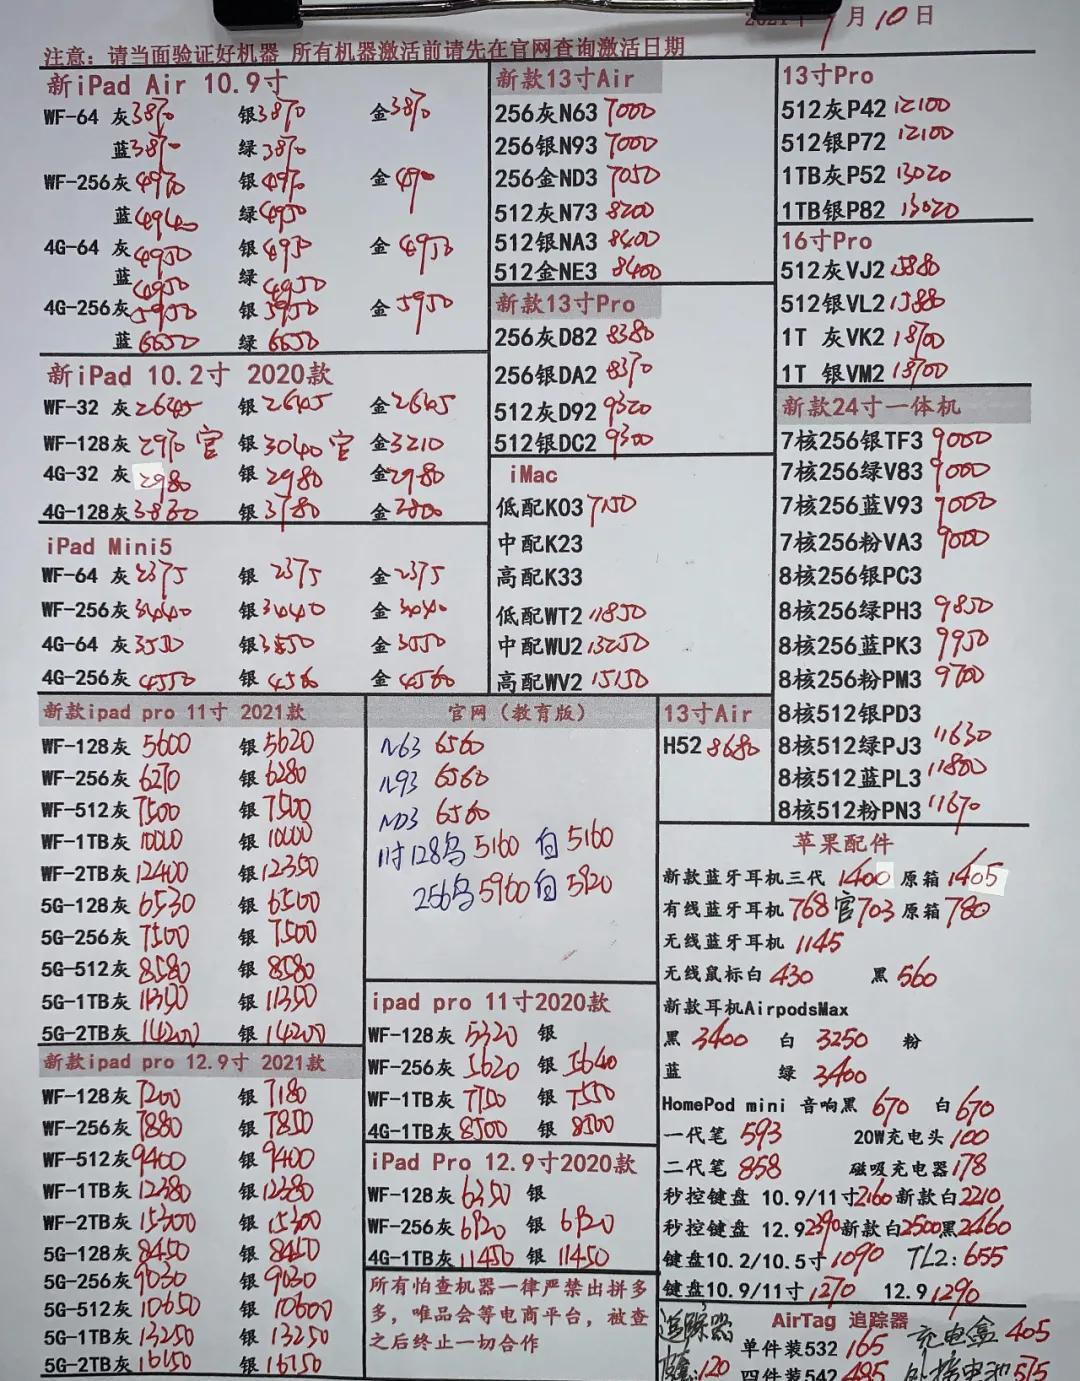 月10日
注意：请当面验证好机器 所有机器激活前请先在官网查询激活日期
新iPad Air 10.9寸
WF-64 灰3870 银3870 金3870
蓝3870 绿3870
WF-256灰4970 银4970 金
蓝 绿4950
4G-64 灰4950 银4950 金4950
蓝4950 绿4950
4G-256灰5950 银5950 金5950
蓝6650 绿6650
新iPad 10.2寸 2020款
WF-32 灰2645 银2645 金2645
WF-128灰2970官 银3040官 金3210
4G-32 灰2980 银2980 金2980
4G-128灰3830 银3780 金
iPad Mini5
WF-64 灰2375 银2375 金2375
WF-256灰3440 银3440 金
4G-64 灰 银 金3550
4G-256灰4550 银4560 金4560
新款ipad pro 11寸 2021款
WF-128灰 5600 银5620
WF-256灰 6270 银6280
WF-512灰7500 银7500
WF-1TB灰10000 银10000
WF-2TB灰12400 银12350
5G-128灰6530 银6500
5G-256灰7500 银7500
5G-512灰8580 银8580
5G-1TB灰11350 银11350
5G-2TB灰14200 银14200
新款ipad pro 12.9寸 2021款
WF-128灰7200 银7180
WF-256灰7880 银7850
WF-512灰9400 银9400
WF-1TB灰12380 银12380
WF-2TB灰15300 银15300
5G-128灰8450 银8450
5G-256灰9030 银9030
5G-512灰10650 银10600
5G-1TB灰13250 银13250
5G-2TB灰16150 银16150
新款13寸Air
256灰N63 7000
256银N93 7000
256金ND3 7050
512灰N73 8200
512银NA3 8400
512金NE3 8400
新款13寸Pro
256灰D82 8380
256银DA2 8370
512灰D92 9320
512银DC2 9300
iMac
低配K03 7150
中配K23
高配K33
低配WT2 11850
中配WU2 13250
高配WV2 15150
官网（教育版）
N63 6560
N93 6560
ND3 6560
11寸128乌5160 白5160
256乌5960白5920
ipad pro 11寸2020款
WF-128灰 5320 银
WF-256灰 5620 银 5640
WF-1TB灰7700 银 7550
4G-1TB灰8500 银 8500
iPad Pro 12.9寸2020款
WF-128灰6350 银
WF-256灰6920 银 6920
4G-1TB灰11450 银 11450
所有怕查机器一律严禁出拼多
多，唯品会等电商平台，被查
之后终止一切合作
13寸Pro
512灰P42 12100
512银P72 12100
1TB灰P52 13020
1TB银P82 13020
16寸Pro
512灰VJ2 15880
512银VL2 15880
1T 灰VK2 18700
1T 银VM2 18700
新款24寸一体机
7核256银TF3 9000
7核256绿V83 9000
7核256蓝V93 9000
7核256粉VA3 9000
8核256银PC3
8核256绿PH3 9850
8核256蓝PK3 9950
8核256粉PM3 9700
8核512银PD3
8核512绿PJ3 11630
8核512蓝PL3 11800
8核512粉PN3 11670
13寸Air
H52 8680
苹果配件
新款蓝牙耳机三代 1400 原箱 1405
有线蓝牙耳机768官703 原箱780
无线蓝牙耳机 1145
无线鼠标白 430 黑 560
新款耳机AirpodsMax
黑 3400 白 3250 粉
蓝 绿 3400
HomePod mini 音响黑 670 白670
一代笔 593 20W充电头100
二代笔 858 磁吸充电器178
秒控键盘 10.9/11寸2160新款白2210
秒控键盘 12.9 2390新款白2500黑2460
键盘10.2/10.5寸1090 TL2:655
键盘10.9/11寸1270 12.9 1290
AirTag 追踪器
追踪器 单件装532 165 充电盒405
120 四件装542 495 外接电池575